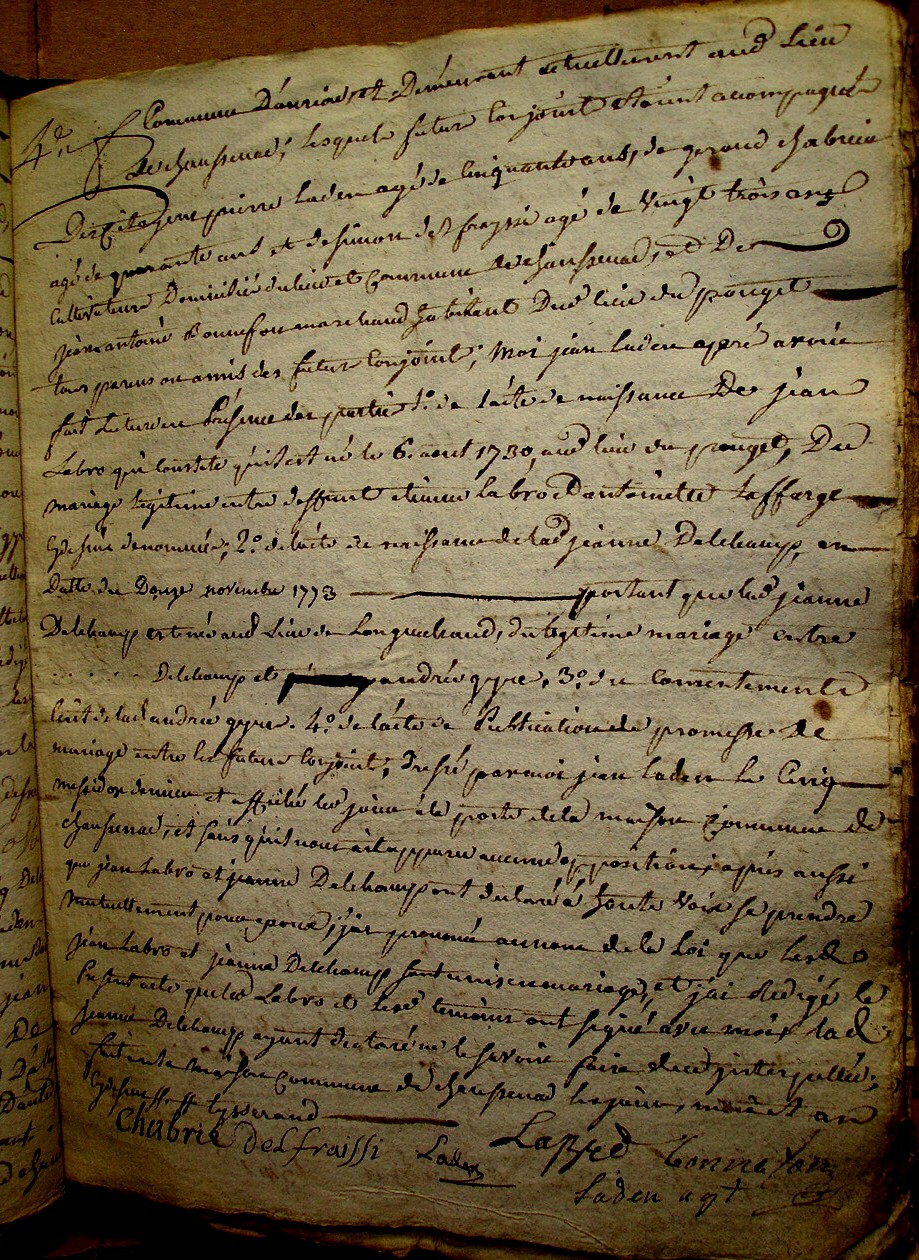 4e
Commune D'auriac, et Demeurant actuellement aud Lieu
de chaussenac; lesquels futur Conjoint etoient accompagnés
Des Citoyens pierre Laden agé de Cinquante ans, de geraud chabrie
agé de quarante ans et de simon delfreyssi agé de Vingt trois ans
Cultivateurs Domiciliés du lieu et Commune de chaussenac, et De
jean antoine Bonnefon marchand habitant Dud lieu du pouget
tous parens ou amis des futur Conjoint; Moi jean Laden aprés avoir
fait Lecture en Présence des parties 1o. de l'acte de naissance De jean
Labro qui Constate qu'il est né le 6. aout 1730, aud lieu du pouget, Du
mariage legitime entre deffunt etienne Labro et antoinette Laffarge
2o. de l'acte de naissance de lad jeanne Delchamp, en
Datte du Douze novembre 1773 portant que lad jeanne
Delchamp est née aud Lieu de Longuechaud, du legitime mariage entre
. . . . . . Delchamp et andrée gyre, 3o. du Consentement
de lad andrée gyre. 4o. de l'acte de Publication de promesse De
mariage entre les futurs Conjoint; Dressé par moi jean laden le Cinq
messidor dernier et affiché led jour a la porte de la maison Commune de
chaussenac, et sans qu'il nous ait apparu aucune opposition; aprés aussi
que jean Labro et jeanne Delchamp ont declaré à haute Voix se prendre
Mutuellement pour epoux; j'ai prononcé au nom de la Loi que lesd
jean Labro et jeanne Delchamp sont unis en mariage, et j'ai redigé le
Présent acte que led Labro et lesd temoins ont signé avec moi, lad
jeanne Delchamp ayant declaré ne le savoir faire de ce interpellée;
fait en la Maison Commune de chaussenac les jour, mois et an
Chabrie delfraissi Laden Labro Bonnefon
Laden agt